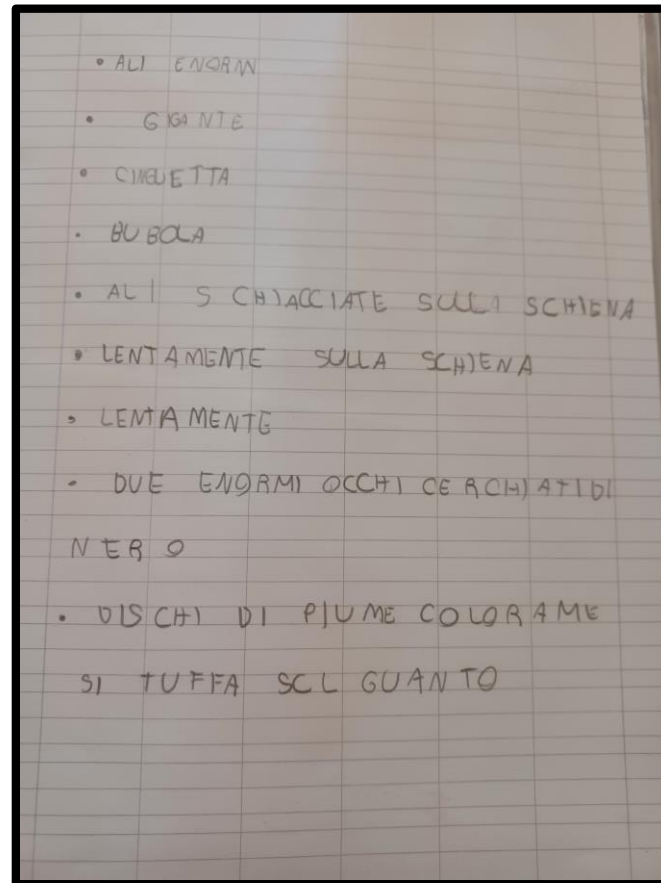 • ALI ENORMI
• GIGANTE
• CINGUETTA
• BUBOLA
• ALI SCHIACCIATE SULLA SCHIENA
• LENTAMENTE SULLA SCHIENA
• LENTAMENTE
• DUE ENORMI OCCHI CERCHIATI DI
NERO
• DISCHI DI PIUME COLOR AME
SI TUFFA SCL GUANTO